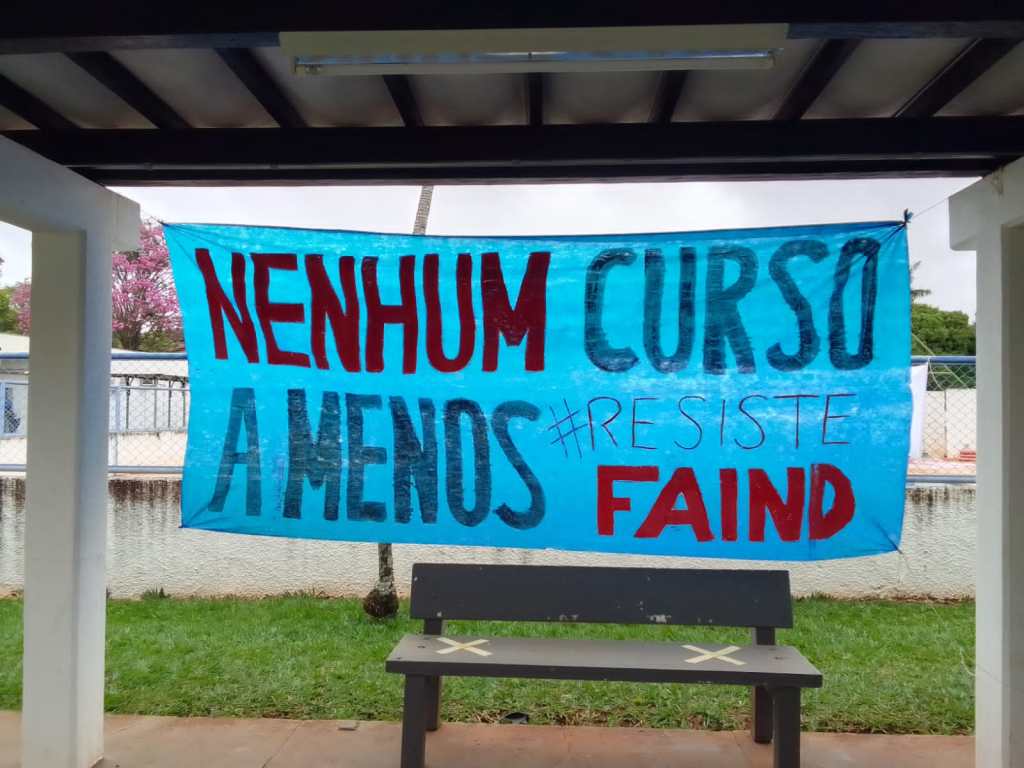 NENHUM CURSO
A MENOS #RESISTE
FAIND